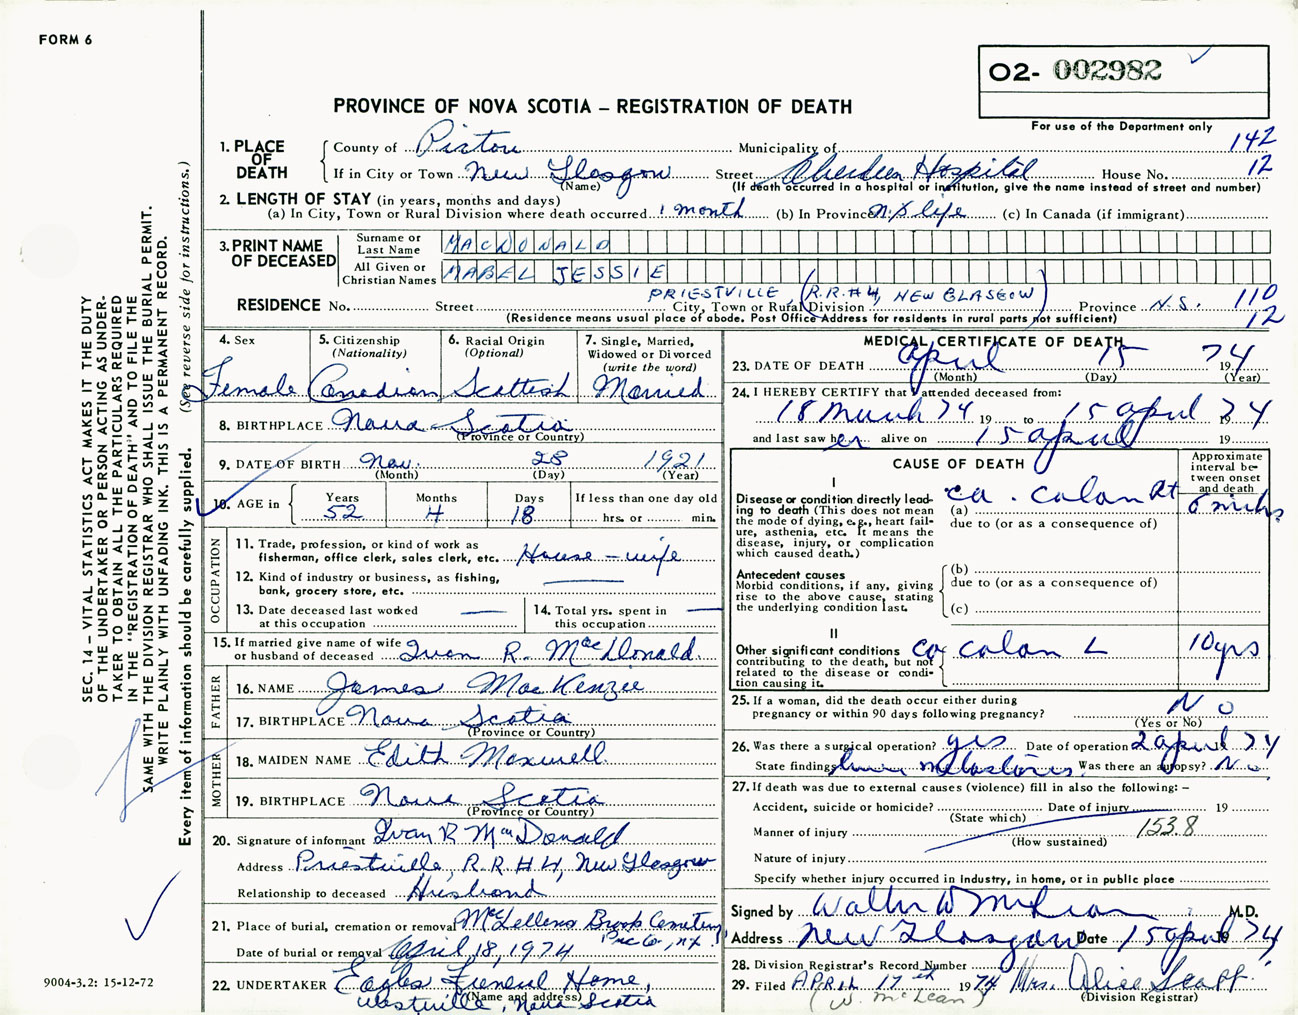 FORM 6
O2- 002982
PROVINCE OF NOVA SCOTIA – REGISTRATION OF DEATH
For use of the Department only
142
12
1. PLACE OF DEATH
County of Pictou Municipality of
If in City or Town New Glasgow Street Aberdeen Hospital House No.
(Name) (If death occurred in a hospital or institution, give the name instead of street and number)
2. LENGTH OF STAY (in years, months and days)
(a) In City, Town or Rural Division where death occurred 1 month (b) In Province N.S life (c) In Canada (if immigrant)
3. PRINT NAME OF DECEASED
Surname or Last Name MACDONALD
All Given or Christian Names MABEL JESSIE
PRIESTVILLE, (R.R.#4, NEW GLASGOW)
RESIDENCE No. Street City, Town or Rural Division Province N.S.
110
12
(Residence means usual place of abode. Post Office Address for residents in rural parts not sufficient)
4. Sex
Female
5. Citizenship
(Nationality)
Canadian
6. Racial Origin
(Optional)
Scottish
7. Single, Married,
Widowed or Divorced
(write the word)
Married
8. BIRTHPLACE Nova Scotia
(Province or Country)
9. DATE OF BIRTH Nov. 28 1921
(Month) (Day) (Year)
10. AGE in
Years Months Days If less than one day old
52 4 18 hrs. or min.
OCCUPATION
11. Trade, profession, or kind of work as
fisherman, office clerk, sales clerk, etc. House-wife
12. Kind of industry or business, as fishing,
bank, grocery store, etc.
13. Date deceased last worked
at this occupation
14. Total yrs. spent in
this occupation
15. If married give name of wife
or husband of deceased Ivan R. MacDonald
FATHER
16. NAME James MacKenzie
17. BIRTHPLACE Nova Scotia
(Province or Country)
MOTHER
18. MAIDEN NAME Edith Maxwell
19. BIRTHPLACE Nova Scotia
(Province or Country)
20. Signature of informant Ivan R MacDonald
Address Priestville, R.R #4, New Glasgow
Relationship to deceased Husband
21. Place of burial, cremation or removal McLellans Brook Cemetery
Pic Co., N.S.
Date of burial or removal April 18, 1974
22. UNDERTAKER Eagles Funeral Home,
(Name and address)
Westville, Nova Scotia
MEDICAL CERTIFICATE OF DEATH
23. DATE OF DEATH April 15 1974
(Month) (Day) (Year)
24. I HEREBY CERTIFY that I attended deceased from:
18 March 74 19 to 15 April 19 74
and last saw her alive on 15 April 19
CAUSE OF DEATH
Approximate interval between onset and death
I
Disease or condition directly leading to death (This does not
mean the mode of dying, e.g., heart failure, asthenia, etc. It means the
disease, injury, or complication
which caused death.)
(a) ca. colon Rt 6 mths
due to (or as a consequence of)
Antecedent causes
Morbid conditions, if any, giving
rise to the above cause, stating
the underlying condition last.
(b)
due to (or as a consequence of)
(c)
II
Other significant conditions
contributing to the death, but not
related to the disease or condition causing it.
ca colon L 10 yrs
25. If a woman, did the death occur either during
pregnancy or within 90 days following pregnancy? No
(Yes or No)
26. Was there a surgical operation? yes Date of operation 2 April 74
State findings liver metastases Was there an autopsy? No
27. If death was due to external causes (violence) fill in also the following: –
Accident, suicide or homicide? Date of injury 19
(State which)
Manner of injury 153.8
(How sustained)
Nature of injury
Specify whether injury occurred in Industry, in home, or in public place
Signed by Walter W McLean M.D.
Address New Glasgow Date 15 April 19 74
28. Division Registrar's Record Number
29. Filed APRIL 17th 1974 Mrs. Alice Scott.
(W. McLean) (Division Registrar)
SEC. 14 – VITAL STATISTICS ACT MAKES IT THE DUTY
OF THE UNDERTAKER OR PERSON ACTING AS UNDER-
TAKER TO OBTAIN ALL THE PARTICULARS REQUIRED
IN THE "REGISTRATION OF DEATH" AND TO FILE THE
SAME WITH THE DIVISION REGISTRAR WHO SHALL ISSUE THE BURIAL PERMIT.
WRITE PLAINLY WITH UNFADING INK. THIS IS A PERMANENT RECORD.
Every item of information should be carefully supplied. (See reverse side for instructions.)
9004-3.2: 15-12-72